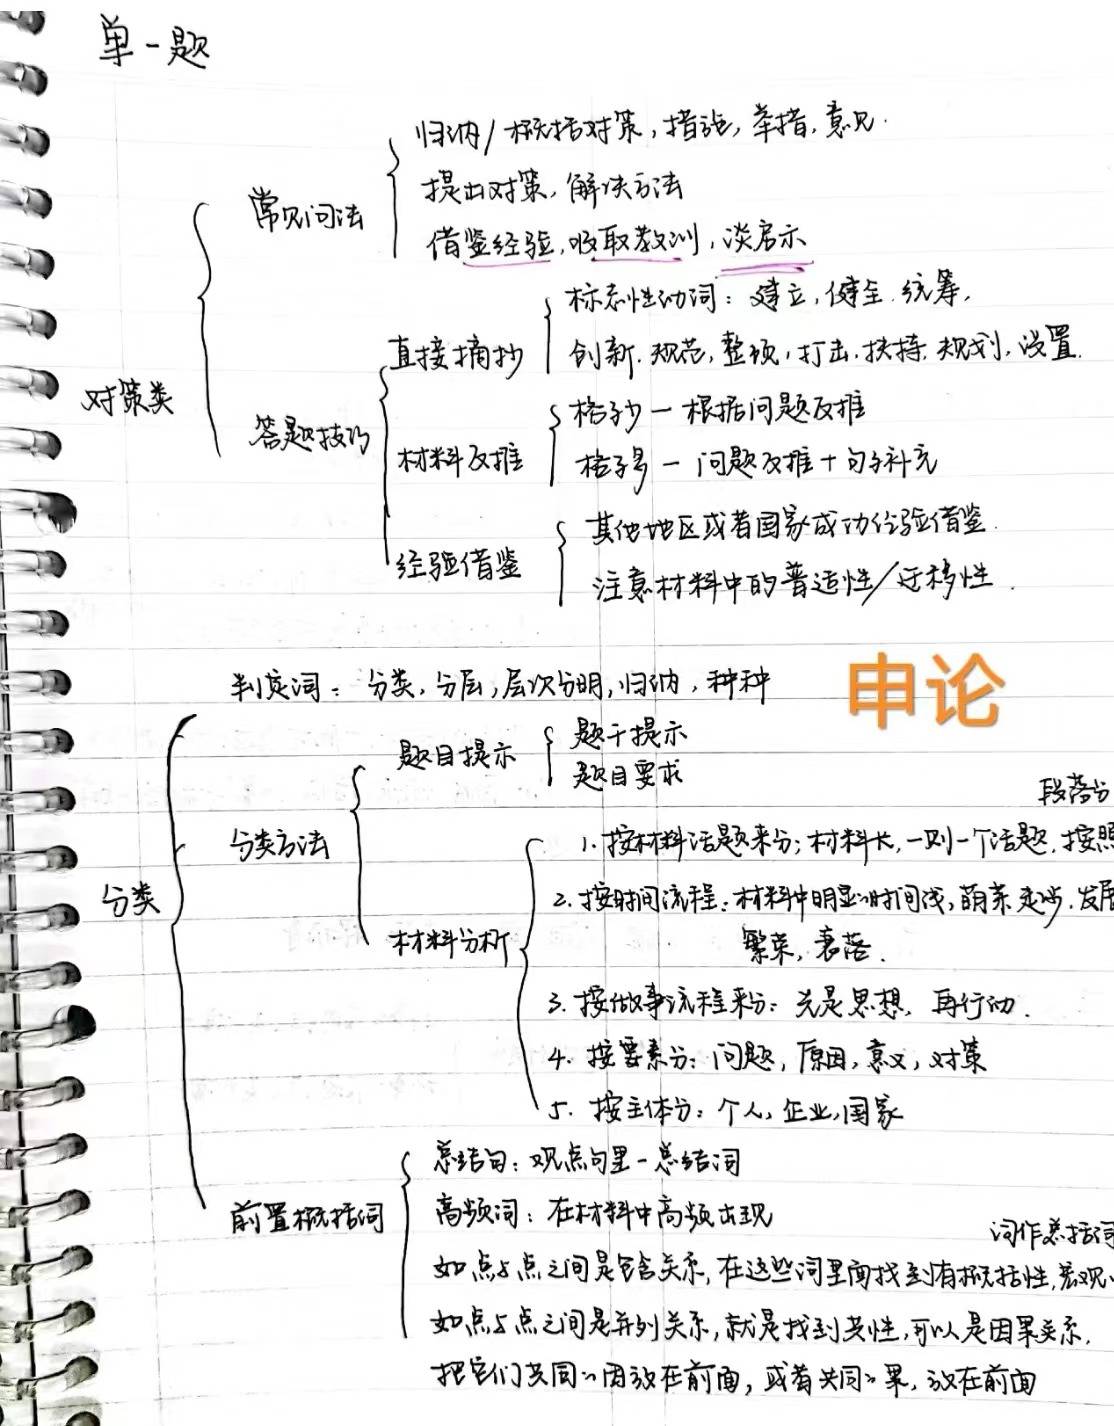 单一题
归纳/概括对策,措施,举措,意见.
常见问法
提出对策,解决方法
借鉴经验,吸取教训,谈启示
对策类
答题技巧
直接摘抄
标志性动词:建立,健全.统筹,
创新.规范,整顿,打击.扶持.规划,设置.
材料反推
格子少一根据问题反推
格子多一问题反推+句子补充
经验借鉴
其他地区或者国家成功经验借鉴.
注意材料中的普适性/迁移性.
申论
判定词:分类,分层,层次分明,归纳,种种
分类
分类方法
题目提示
题干提示
题目要求
材料分析
段落分
1.按材料话题来分;材料长,一则一个话题,按照
2.按时间流程:材料中明显的时间线,萌芽起步.发展
繁荣,衰落.
3.按做事流程来分:先是思想,再行动.
4.按要素分:问题,原因,意义,对策
5.按主体分:个人,企业,国家
前置概括词
总结句:观点句里一总结词
高频词:在材料中高频出现
词作总括词
如点与点之间是包含关系,在这些词里面找到有概括性,宏观
如点与点之间是并列关系,就是找到共性,可以是因果关系,
把它们共同的因放在前面,或者共同的果,放在前面